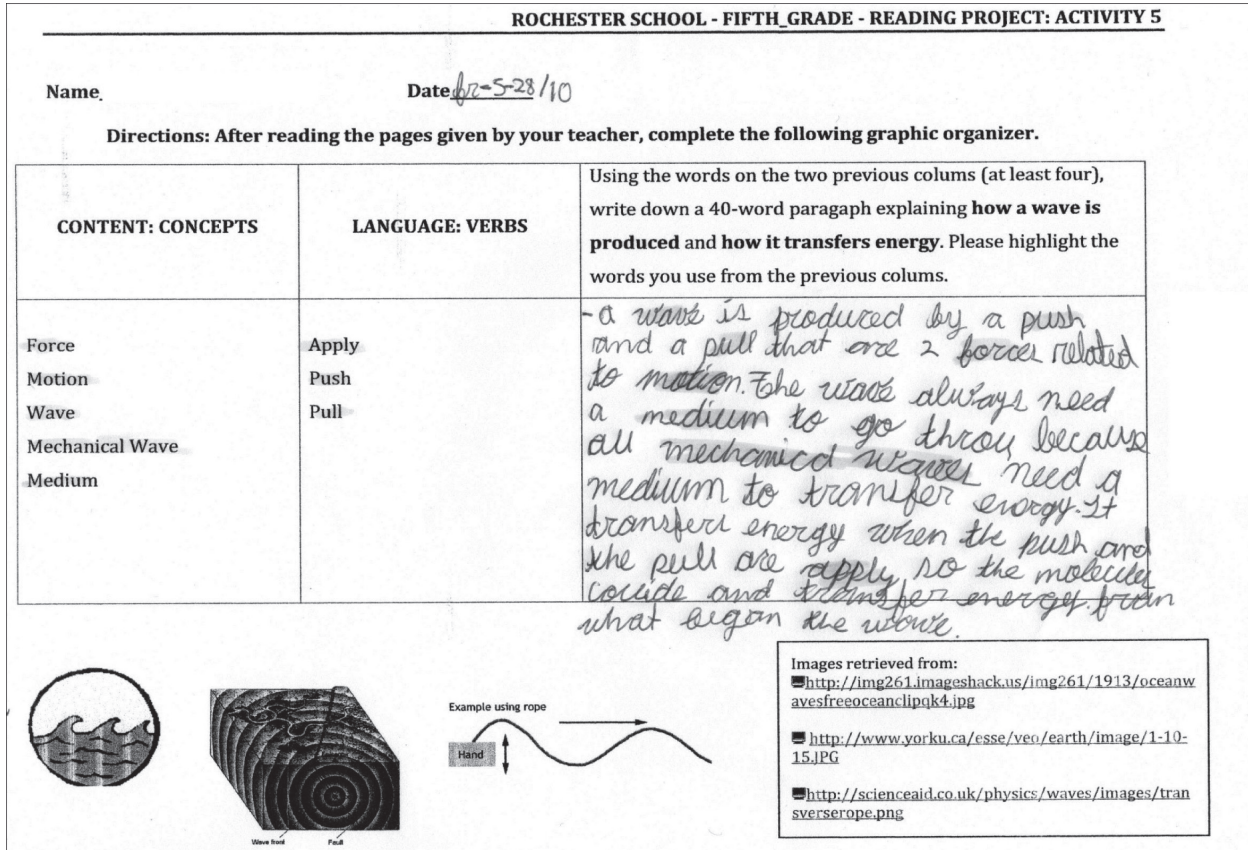 ROCHESTER SCHOOL - FIFTH_GRADE - READING PROJECT: ACTIVITY 5
Name
Date fr-5-28/10
Directions: After reading the pages given by your teacher, complete the following graphic organizer.
CONTENT: CONCEPTS
LANGUAGE: VERBS
Using the words on the two previous colums (at least four),
write down a 40-word paragaph explaining how a wave is
produced and how it transfers energy. Please highlight the
words you use from the previous colums.
Force
Motion
Wave
Mechanical Wave
Medium
Apply
Push
Pull
-a wave is produced by a push
and a pull that are 2 forces related
to motion. The wave always need
a medium to go throu because
all mechanicd waves need a
medium to transfer enorgy. It
transfers energy when the push and
the pull are apply, so the molecules
collide and transfer energy from
what began the wave.
Example using rope
Hand
Wave front
Fault
Images retrieved from:
http://img261.imageshack.us/img261/1913/oceanw
avesfreeoceanclipqk4.jpg
http://www.yorku.ca/esse/veo/earth/image/1-10-
15.JPG
http://scienceaid.co.uk/physics/waves/images/tran
sverserope.png